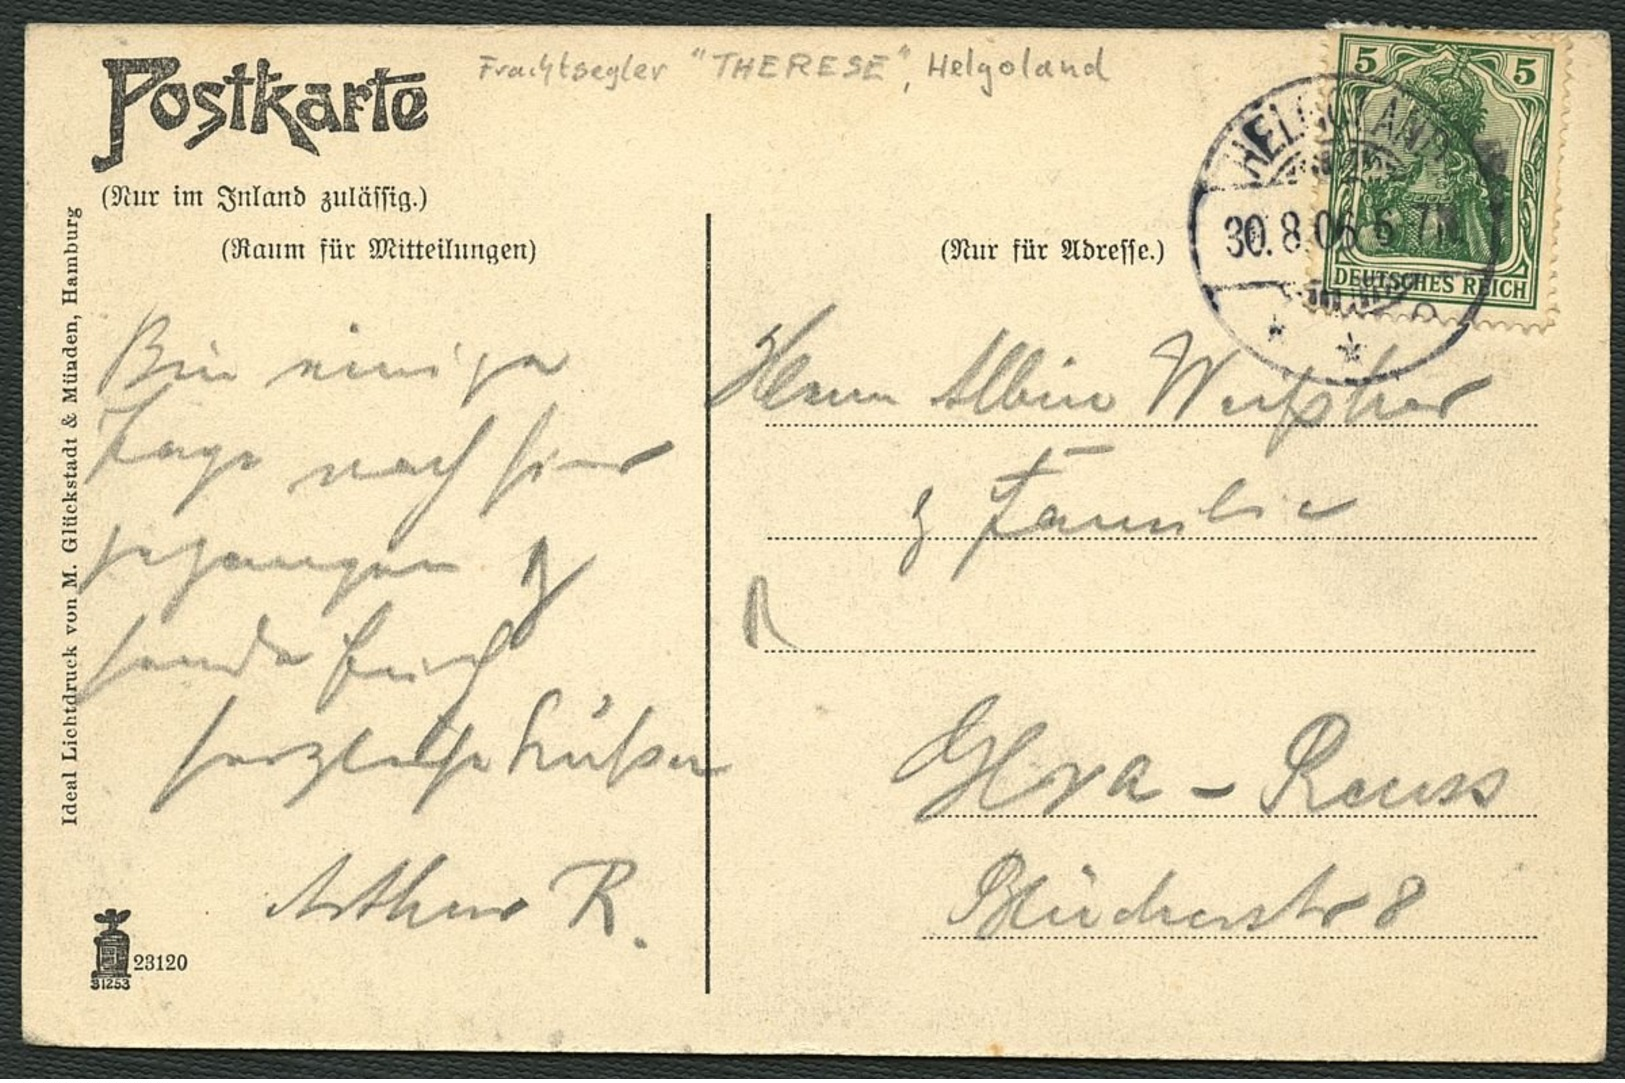 Frachtsegler "THERESE", Helgoland
Postkarte
(Nur im Inland zulässig.)
(Raum für Mitteilungen)
(Nur für Adresse.)
5 5
DEUTSCHES REICH
HELGOLAND
30.8.06 6-7N.
Bin einige
Tage nach hier
gegangen &
sende Euch
herzliche Grüße
Arthur R.
Herrn Albin
& Familie
Gera - Reuss
Blücherstr 8
Ideal Lichtdruck von M. Glückstadt & Münden, Hamburg
23120
31253